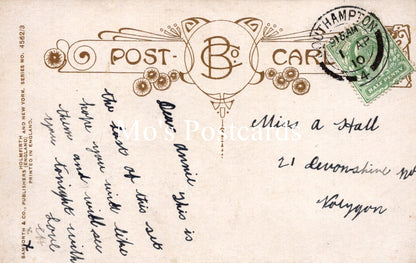 BAMFORTH & CO., PUBLISHERS, HOLMFIRTH
(ENGLAND) AND NEW YORK. SERIES NO. 4562/3
PRINTED IN ENGLAND.
POST CARD
B Co
SOUTHAMPTON
10
4
Mo's Postcards
Dear Annie this is
the last of this set
hope you will like
them and will see
you tonight with
Love
Miss A Hall
21 Devonshire
Polygon